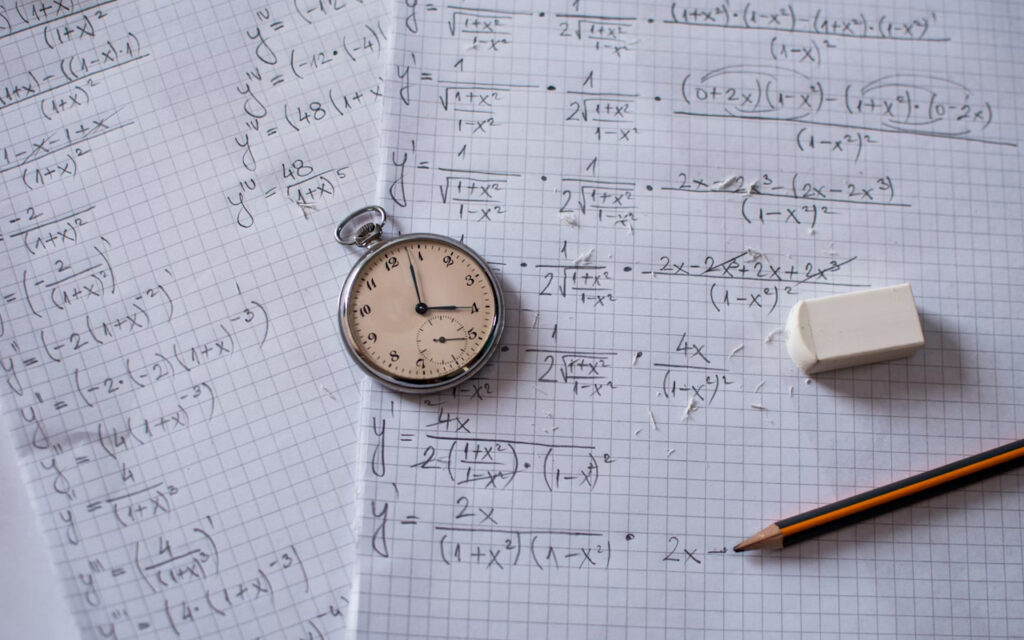 (1+x)²
(1+x) - ((1-x)·1)
(1+x)²
1-x-1+x
(1+x)²
-2
(1+x)²
= (-2/(1+x)²)'
y'' = (-2(1+x)⁻²)'
y'' = (-2·(-2)(1+x)⁻³)
y'' = (4(1+x)⁻³)
y'' = 4/(1+x)³
y''' = (4/(1+x)³)'
y''' = (4·(1+x)⁻³)'
y^IV = (-12
y^IV = (-12·(-4)
y^IV = (48(1+x
y^IV = 48/(1+x)⁵
y' = 1/√((1+x²)/(1-x²)) · 1/(2√((1+x²)/(1-x²))) · ((1+x²)'·(1-x²)-(1+x²)·(1-x²)')/(1-x)²
y' = 1/√((1+x²)/(1-x²)) · 1/(2√((1+x²)/(1-x²))) · ((0+2x)(1-x²)-(1+x²)·(0-2x))/(1-x²)²
y' = 1/√((1+x²)/(1-x²)) · 1/(2√((1+x²)/(1-x²))) · (2x-2x³-(2x-2x³))/(1-x²)²
· 1/(2√((1+x²)/(1-x²))) · (2x-2x³+2x+2x³)/(1-x²)²
· 1/(2√((1+x²)/(1-x²))) · 4x/(1-x²)²
1-x²
y' = 4x/(2·((1+x²)/(1-x²))·(1-x²)²)
y' = 2x/((1+x²)(1-x²)) · 2x -
12 1 2 3 4 5 7 8 9 10 11